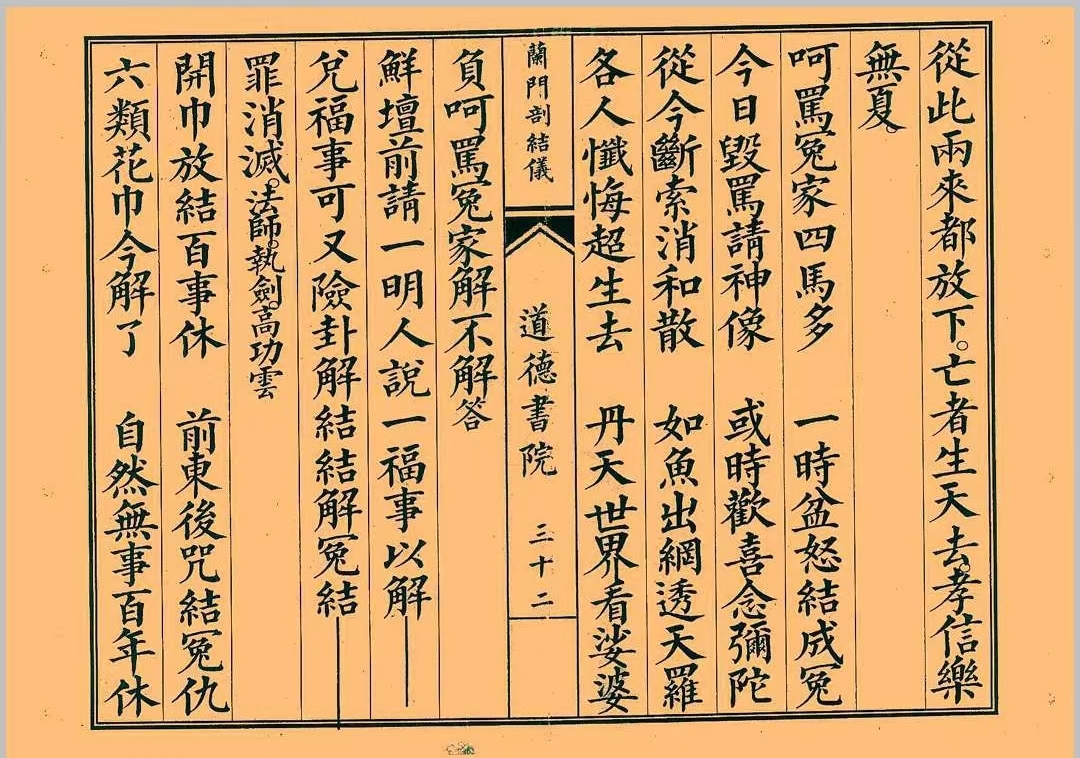 從此兩來都放下。亡者生天去。孝信樂
無憂。
呵罵冤家四馬多　一時盆怒結成冤
今日毀罵請神像　或時歡喜念彌陀
從今斷索消和散　如魚出網透天羅
各人懺悔超生去　丹天世界看娑婆
蘭門剖結儀　道德書院　三十二
負呵罵冤家解不解答
鮮壇前請一明人說一福事以解
兌福事可又險卦解結結解冤結
罪消滅。法師。執劍。高功雲
開巾放結百事休　前東後咒結冤仇
六類花巾今解了　自然無事百年休